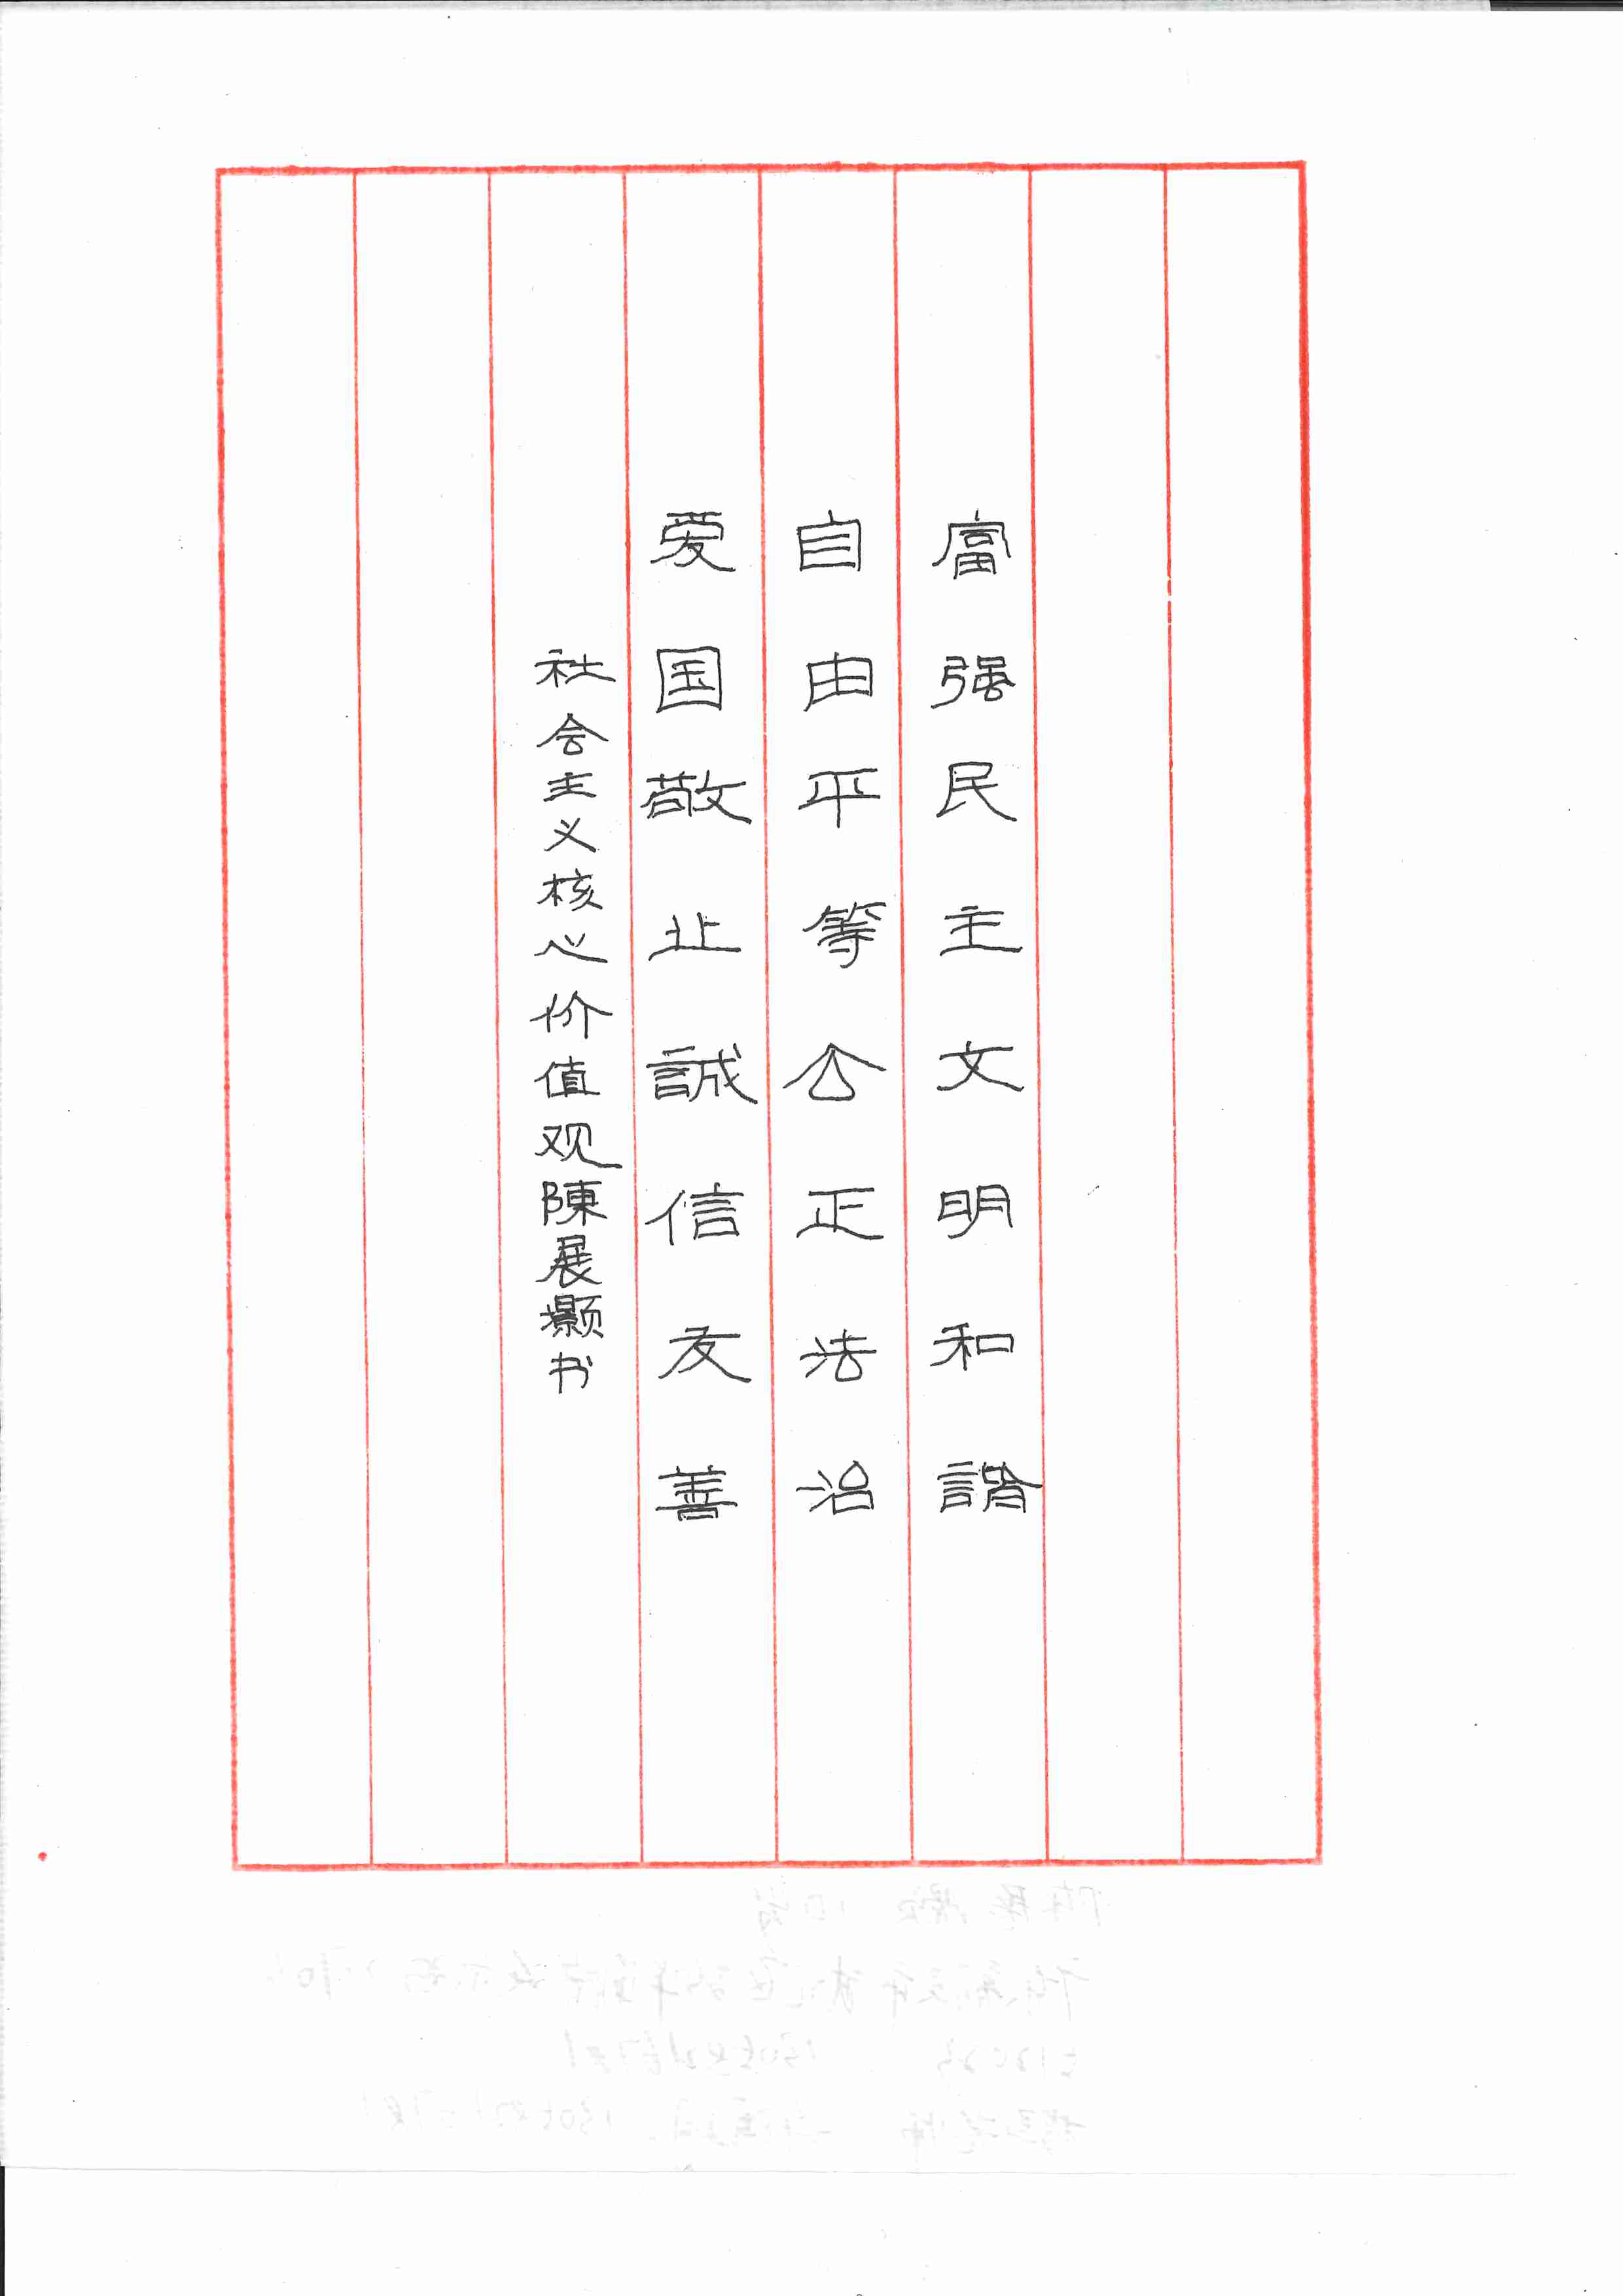 富强民主文明和諧
自由平等公正法治
爱国敬业誠信友善
社会主义核心价值观陳展灏书